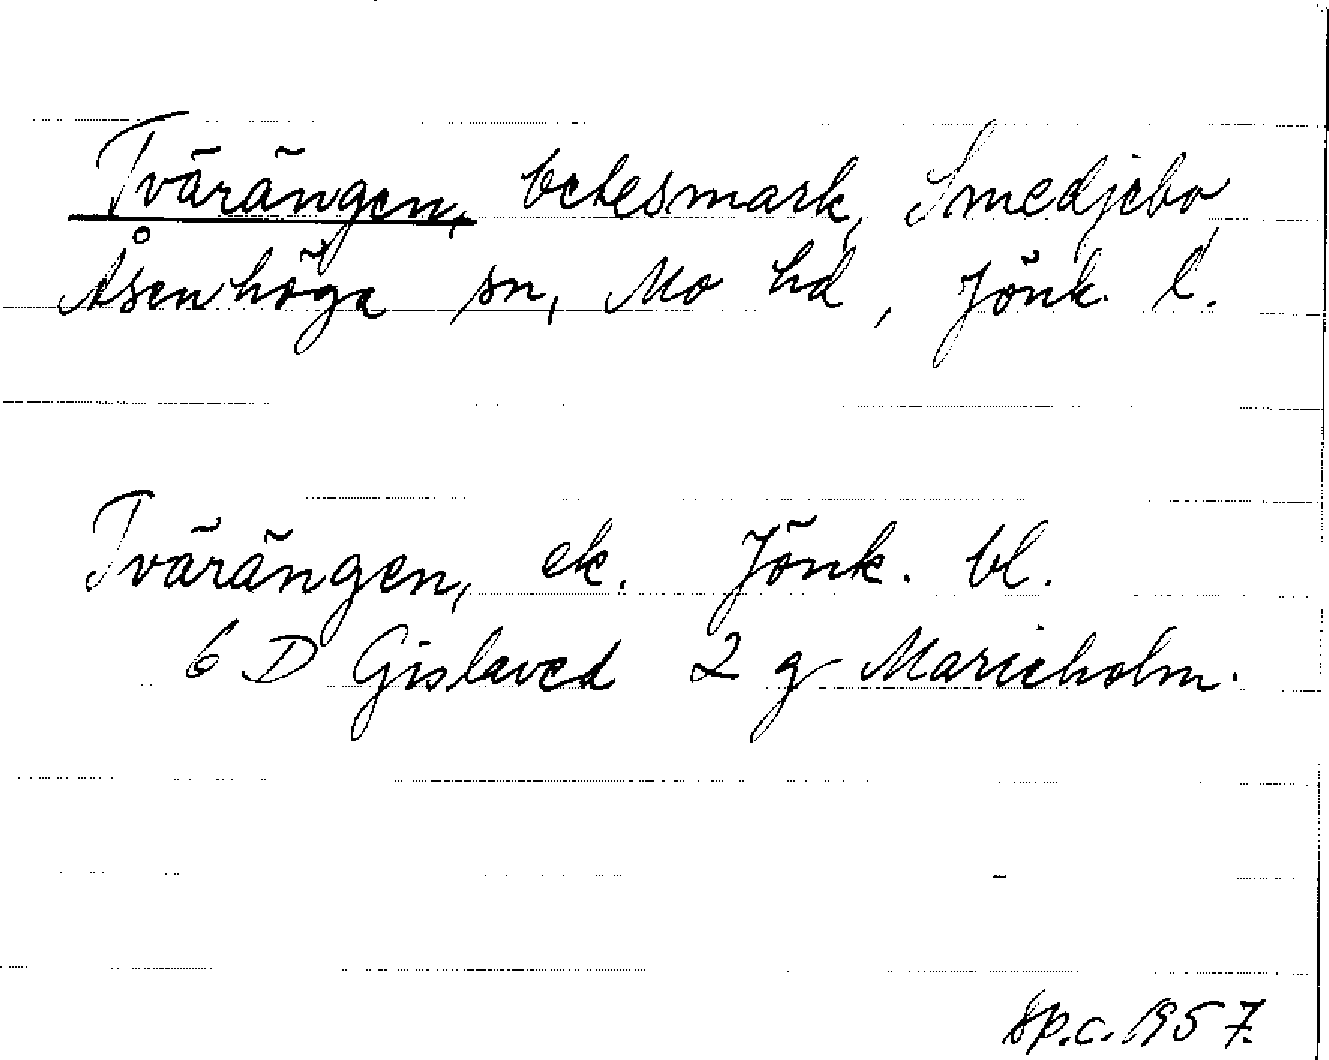 Tvärängen, betesmark, Smedjebo,
Åsenhöga sn, Mo hd, Jönk. l.
Tvärängen, ek. Jönk. bl.
6 D Gislaved 2 g Marieholm.
Sp.c. 1957.